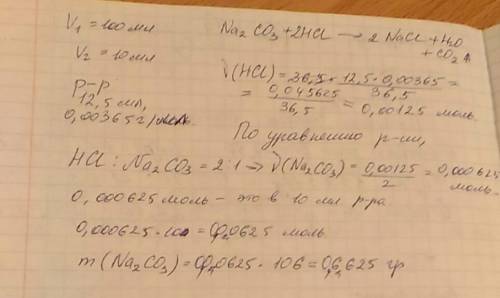 V₁ = 100 мл
V₂ = 10 мл
р-р
12,5 мл,
0,00365 г/мл
Na₂CO₃ + 2HCl → 2NaCl + H₂O
+ CO₂↑
ν(HCl) = 36,5 * 12,5 * 0,00365 / 36,5 =
= 0,045625 / 36,5 = 0,00125 моль.
По уравнению р-ии,
HCl : Na₂CO₃ = 2:1 → ν(Na₂CO₃) = 0,00125 / 2 = 0,000625
моль.
0,000625 моль - это в 10 мл р-ра
0,000625 · 100 = 0,0625 моль
m(Na₂CO₃) = 0,0625 · 106 = 6,625 гр